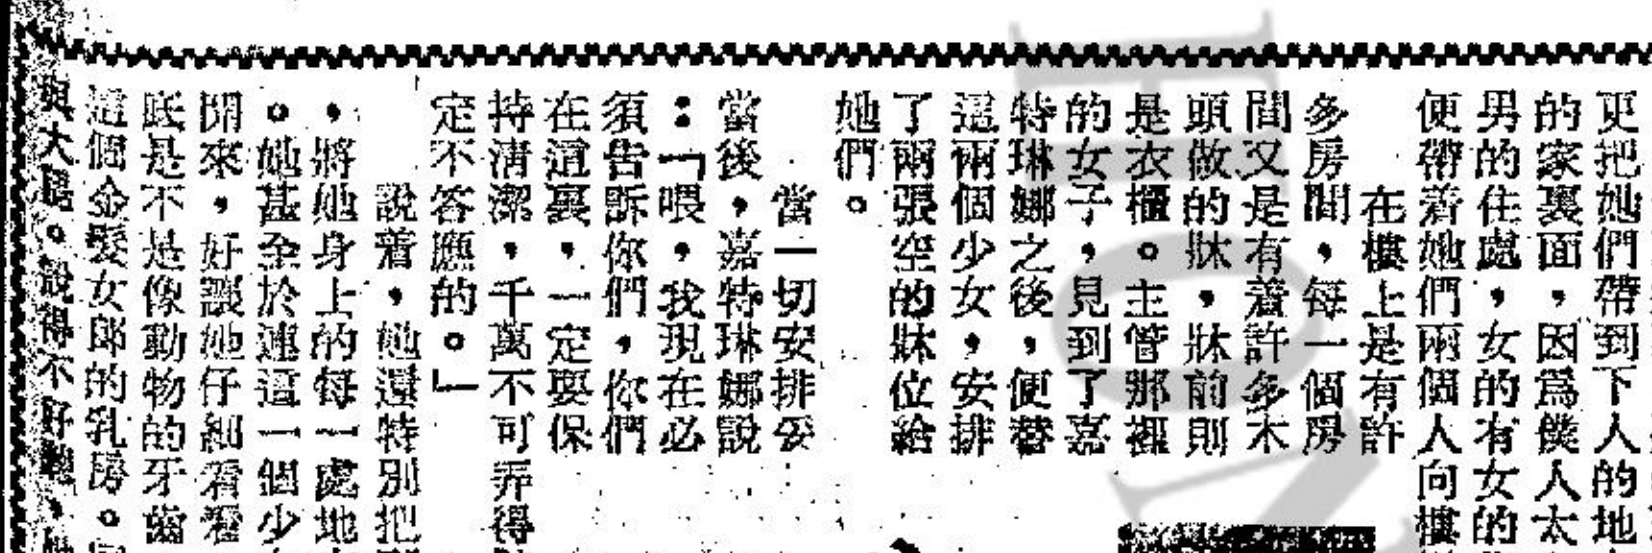 更把她們帶到下人的地
的家裏面，因為僕人太
男的住處，女的有女的
便帶着她們兩個人向樓
在樓上是有許
多房間，每一個房
間又是有着許多木
頭做的牀，牀前則
是衣櫃。主管那裡
的女子，見到了嘉
特琳娜之後，便替
這兩個少女，安排
了兩張空的牀位給
她們。
當一切安排妥
當後，嘉特琳娜說
：「喂，我現在必
須告訴你們，你們
在這裏，一定要保
持清潔，千萬不可弄得
定不答應的。」
說着，她還特別把
，將她身上的每一處地
。她甚至於連這一個少
開來，好讓她仔細看看
底是不是像動物的牙齒
這個金髮女郎的乳房。
與大腿。說得不好聽、